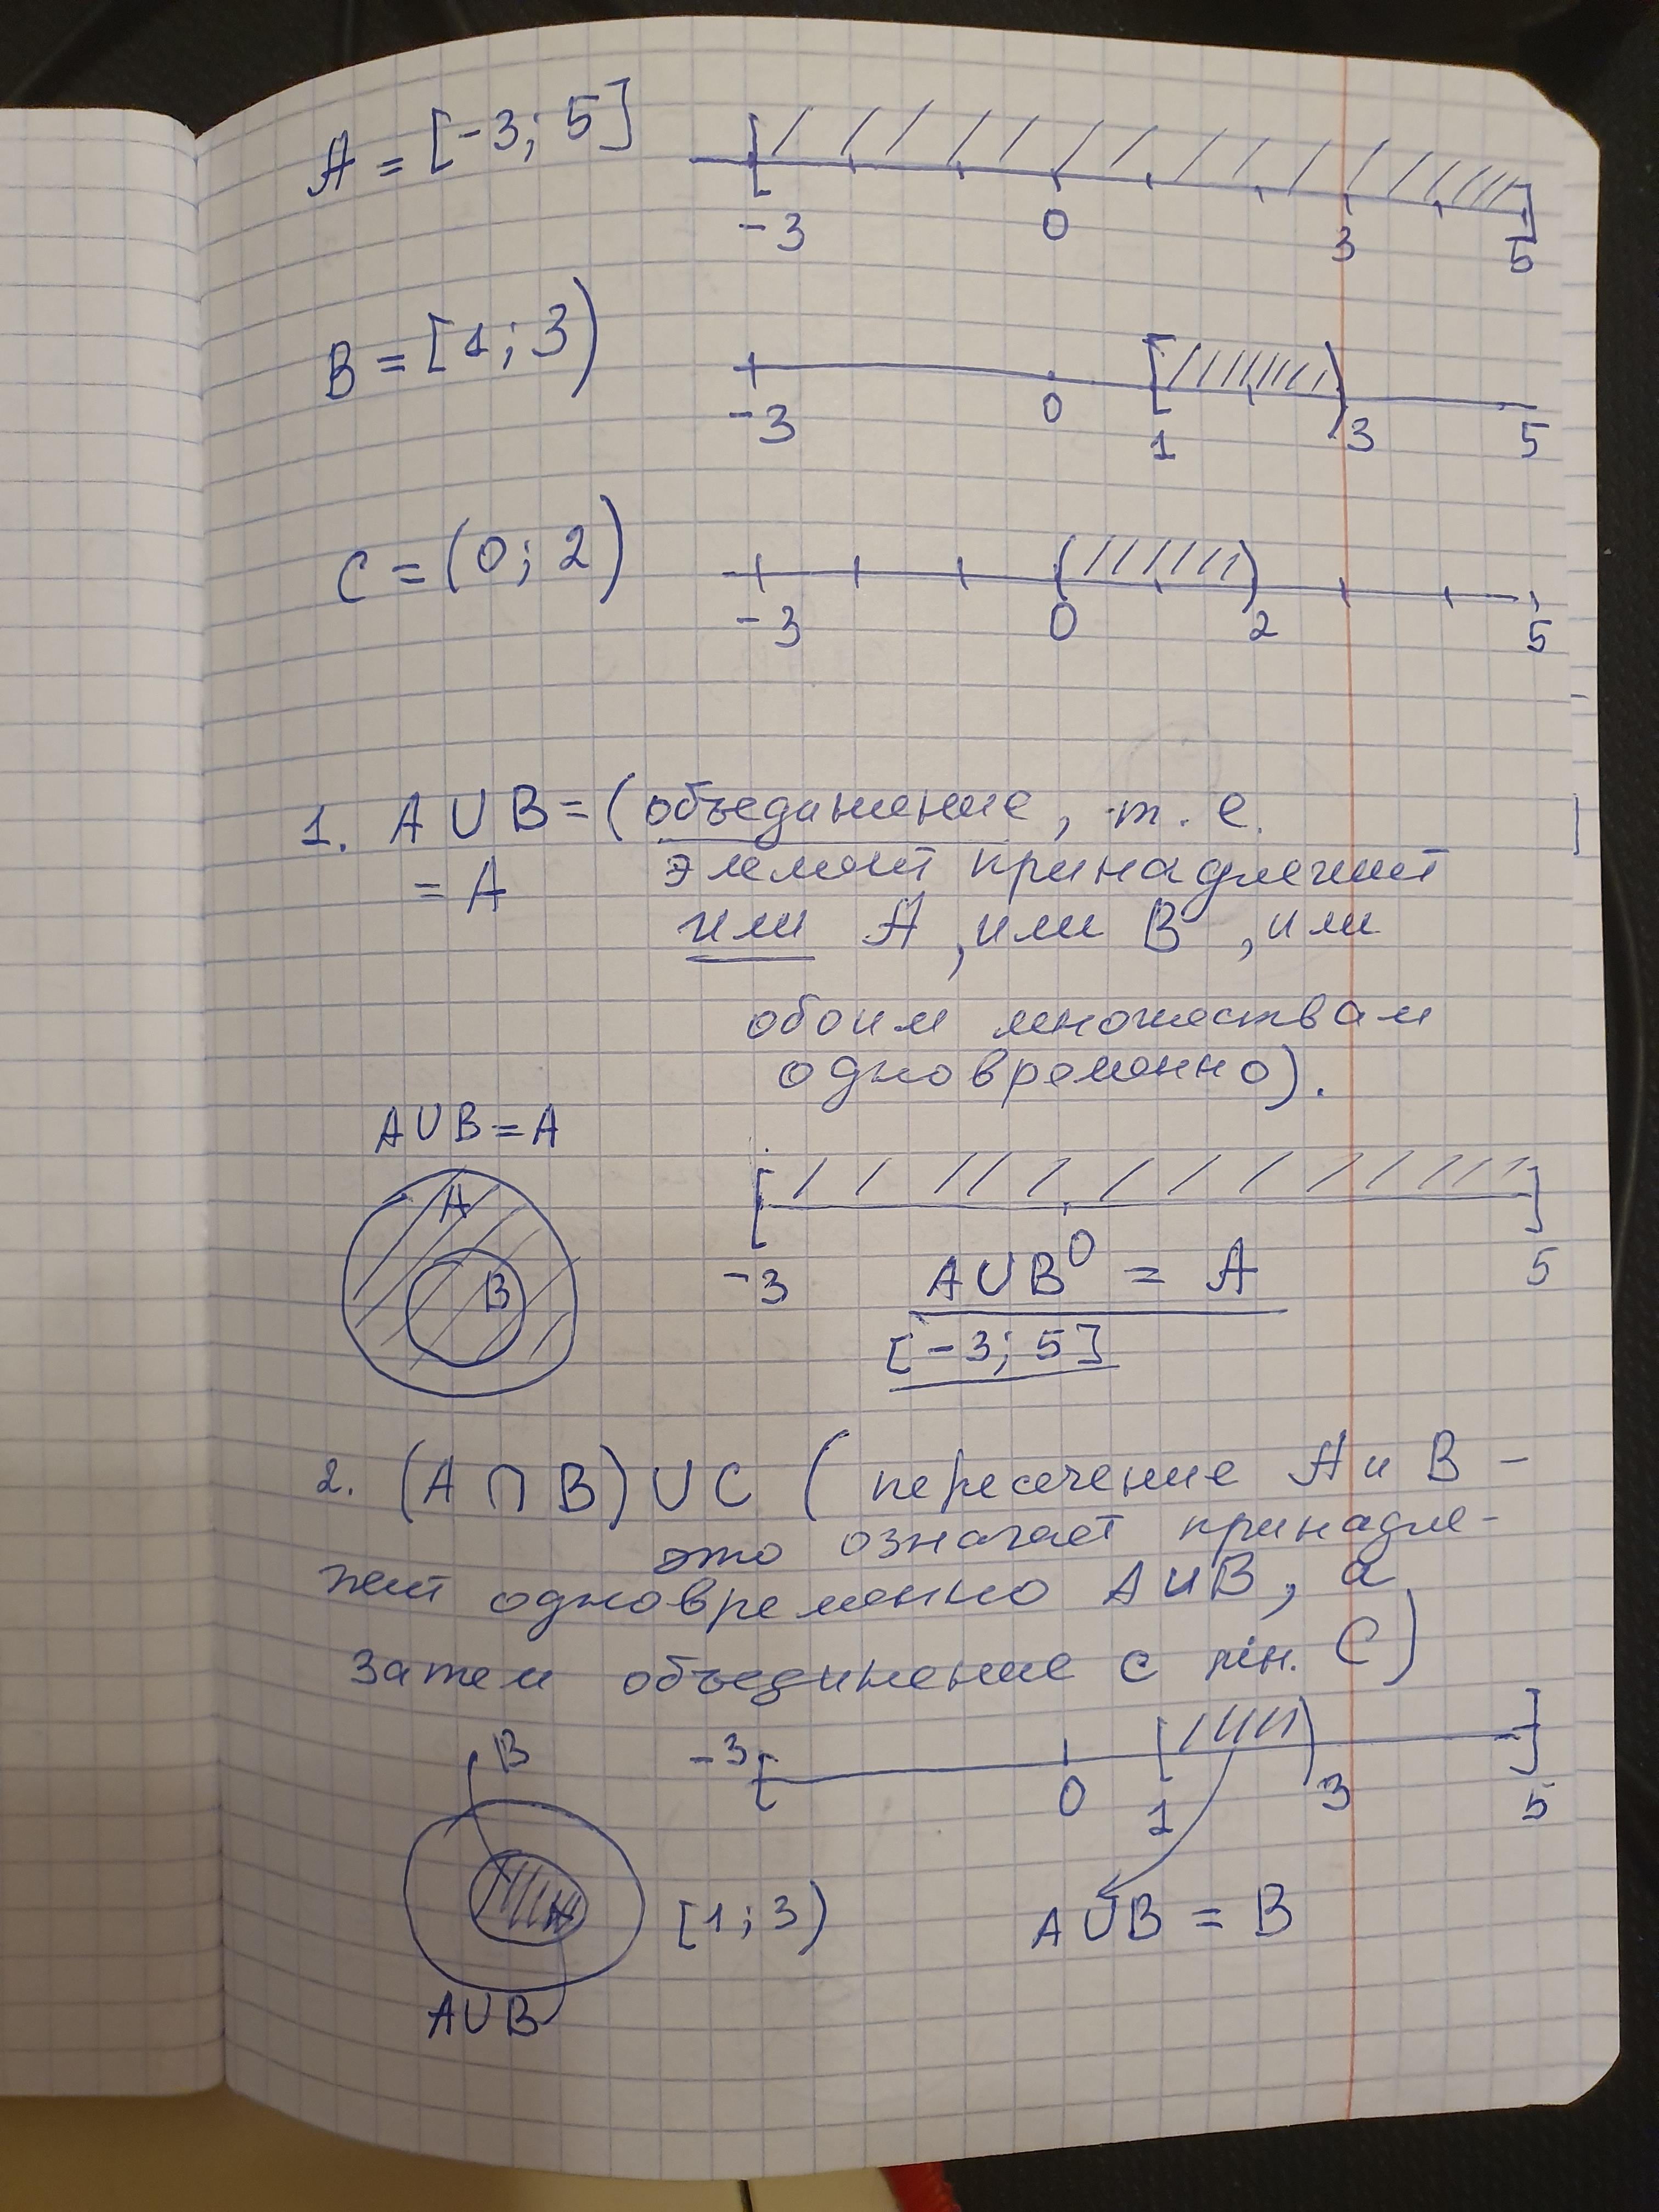 A = [-3; 5]
-3 0 3 5
B = [1; 3)
-3 0 1 3 5
C = (0; 2)
-3 0 2 5
1. A ∪ B = (объединение, т. е.
= A элемент принадлежит
или A, или B, или
обоим множествам
одновременно).
A ∪ B = A
A
B
-3 0 5
A ∪ B = A
[-3; 5]
2. (A ∩ B) ∪ C (пересечение A и B -
это означает принадле-
жит одновременно A и B, а
затем объединение с мн. C)
B
-3 0 1 3 5
A
[1; 3)
A ∪ B = B
A ∪ B